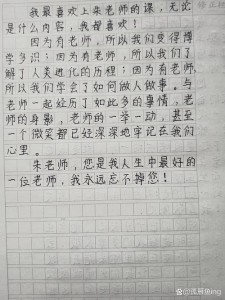 我最喜欢上朱老师的课，无论
是什么内容，我都喜欢！
因为有老师，所以我们变得博
学多识；因为有老师，所以我们了
解了人类进化的历程；因为有老师，
所以我们学会了如何做人做事。与
老师一起经历了如此多的事情，老
师的身影，老师的一举一动，甚至
一个微笑都已经深深地牢记在我们
心里。
朱老师，您是我人生中最好的
一位老师，我永远忘不掉您！